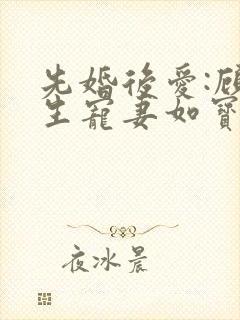 先婚後愛:顧
生寵妻如寶
夜冰晨